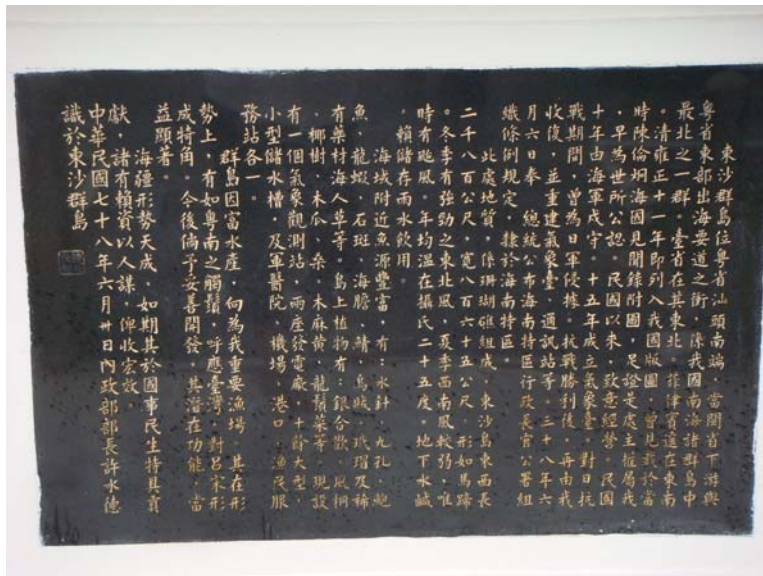 東沙群島位粵省汕頭南端，當閩省下游與
粵省東部出海要道之衝，係我國南海諸群島中
最北之一群。臺省在其東北，菲律賓遠在東南
。清雍正十一年即列入我國版圖，曾見載於當
時陳倫炯海國見聞錄附圖，足證是處主權屬我
，早為世所公認。民國以來，致意經營，民國
十年由海軍戍守。十五年成立氣象臺，對日抗
戰期間，曾為日軍侵據。抗戰勝利後，再由我
收復，並重建氣象臺，通訊站等。三十八年六
月六日奉 總統公布海南特區行政長官公署組
織條例規定，隸於海南特區。
此處地質，係珊瑚礁組成，東沙島東西長
二千八百公尺，寬八百六十五公尺，形如馬蹄
。冬季有強勁之東北風，夏季西南風較弱，唯
時有颱風。年均溫在攝氏二十五度。地下水鹹
，賴儲存雨水飲用。
海域附近魚源豐富，有：水針、九孔、鮑
魚、龍蝦、石斑、海膽、鯖、烏賊、玳瑁及稀
有藥材海人草等。島上植物有：銀合歡、風桐
、椰樹、木瓜、桑、木麻黃、龍鬚菜等。現設
有一個氣象觀測站，兩座發電廠，十餘大型、
小型儲水槽，及軍醫院、機場、港口、漁民服
務站各一。
群島因富水產，向為我重要漁場。其在形
勢上，有如粵南之觸鬚，呼應臺灣，對呂宋形
成犄角。今後倘予妥善開發，其潛在功能，當
益顯著。
海疆形勢天成，如期其於國事民生特具貢
獻，諸有賴資以人謀，俾收宏效。
中華民國七十八年六月卅日內政部部長許水德
識於東沙群島